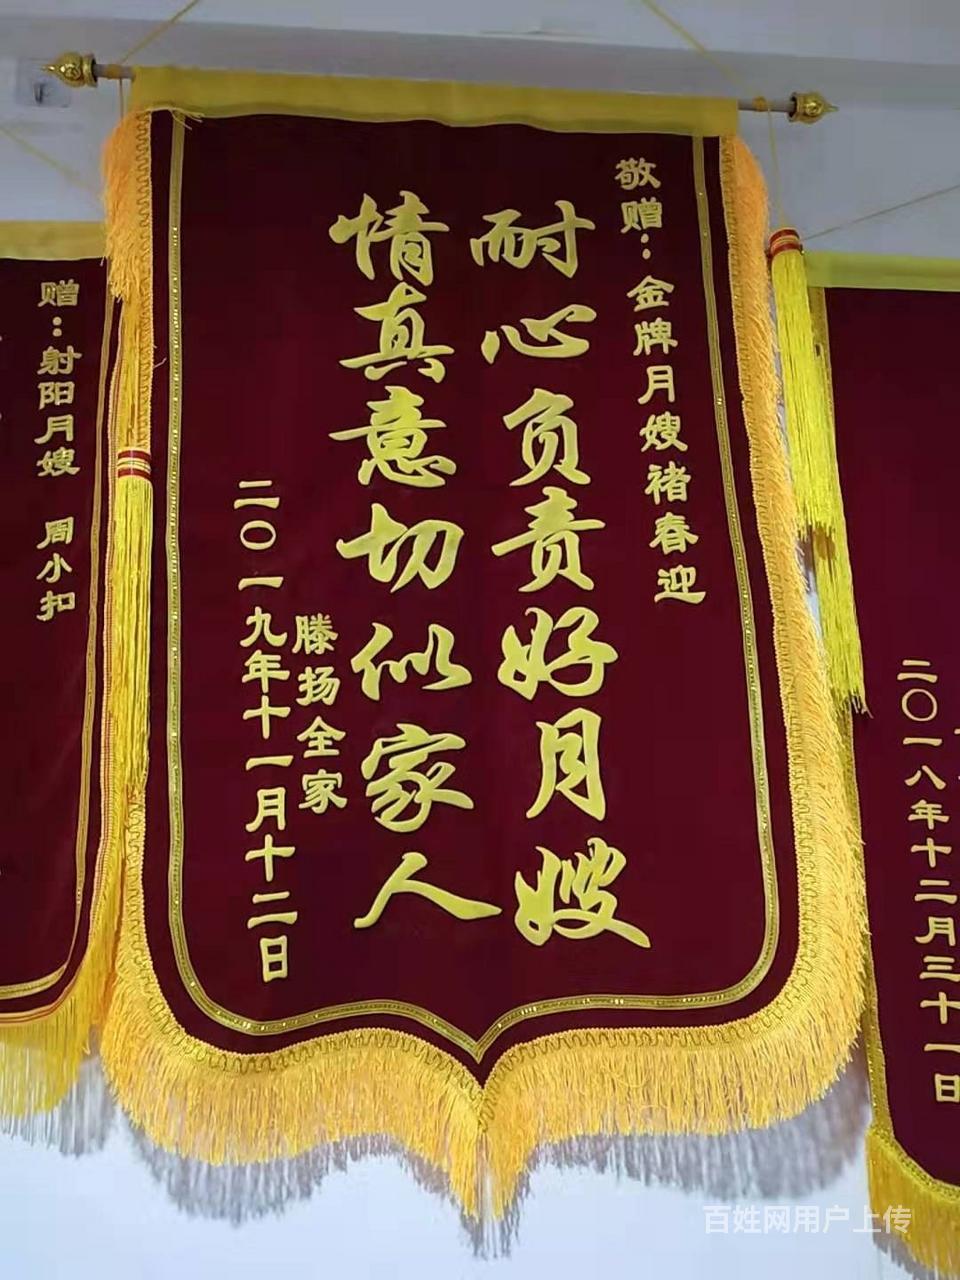 敬赠：金牌月嫂褚春迎
耐心负责好月嫂
情真意切似家人
滕扬全家
二〇一九年十一月十二日
赠：射阳月嫂 周小扣
二〇一八年十二月三十一日
百姓网用户上传